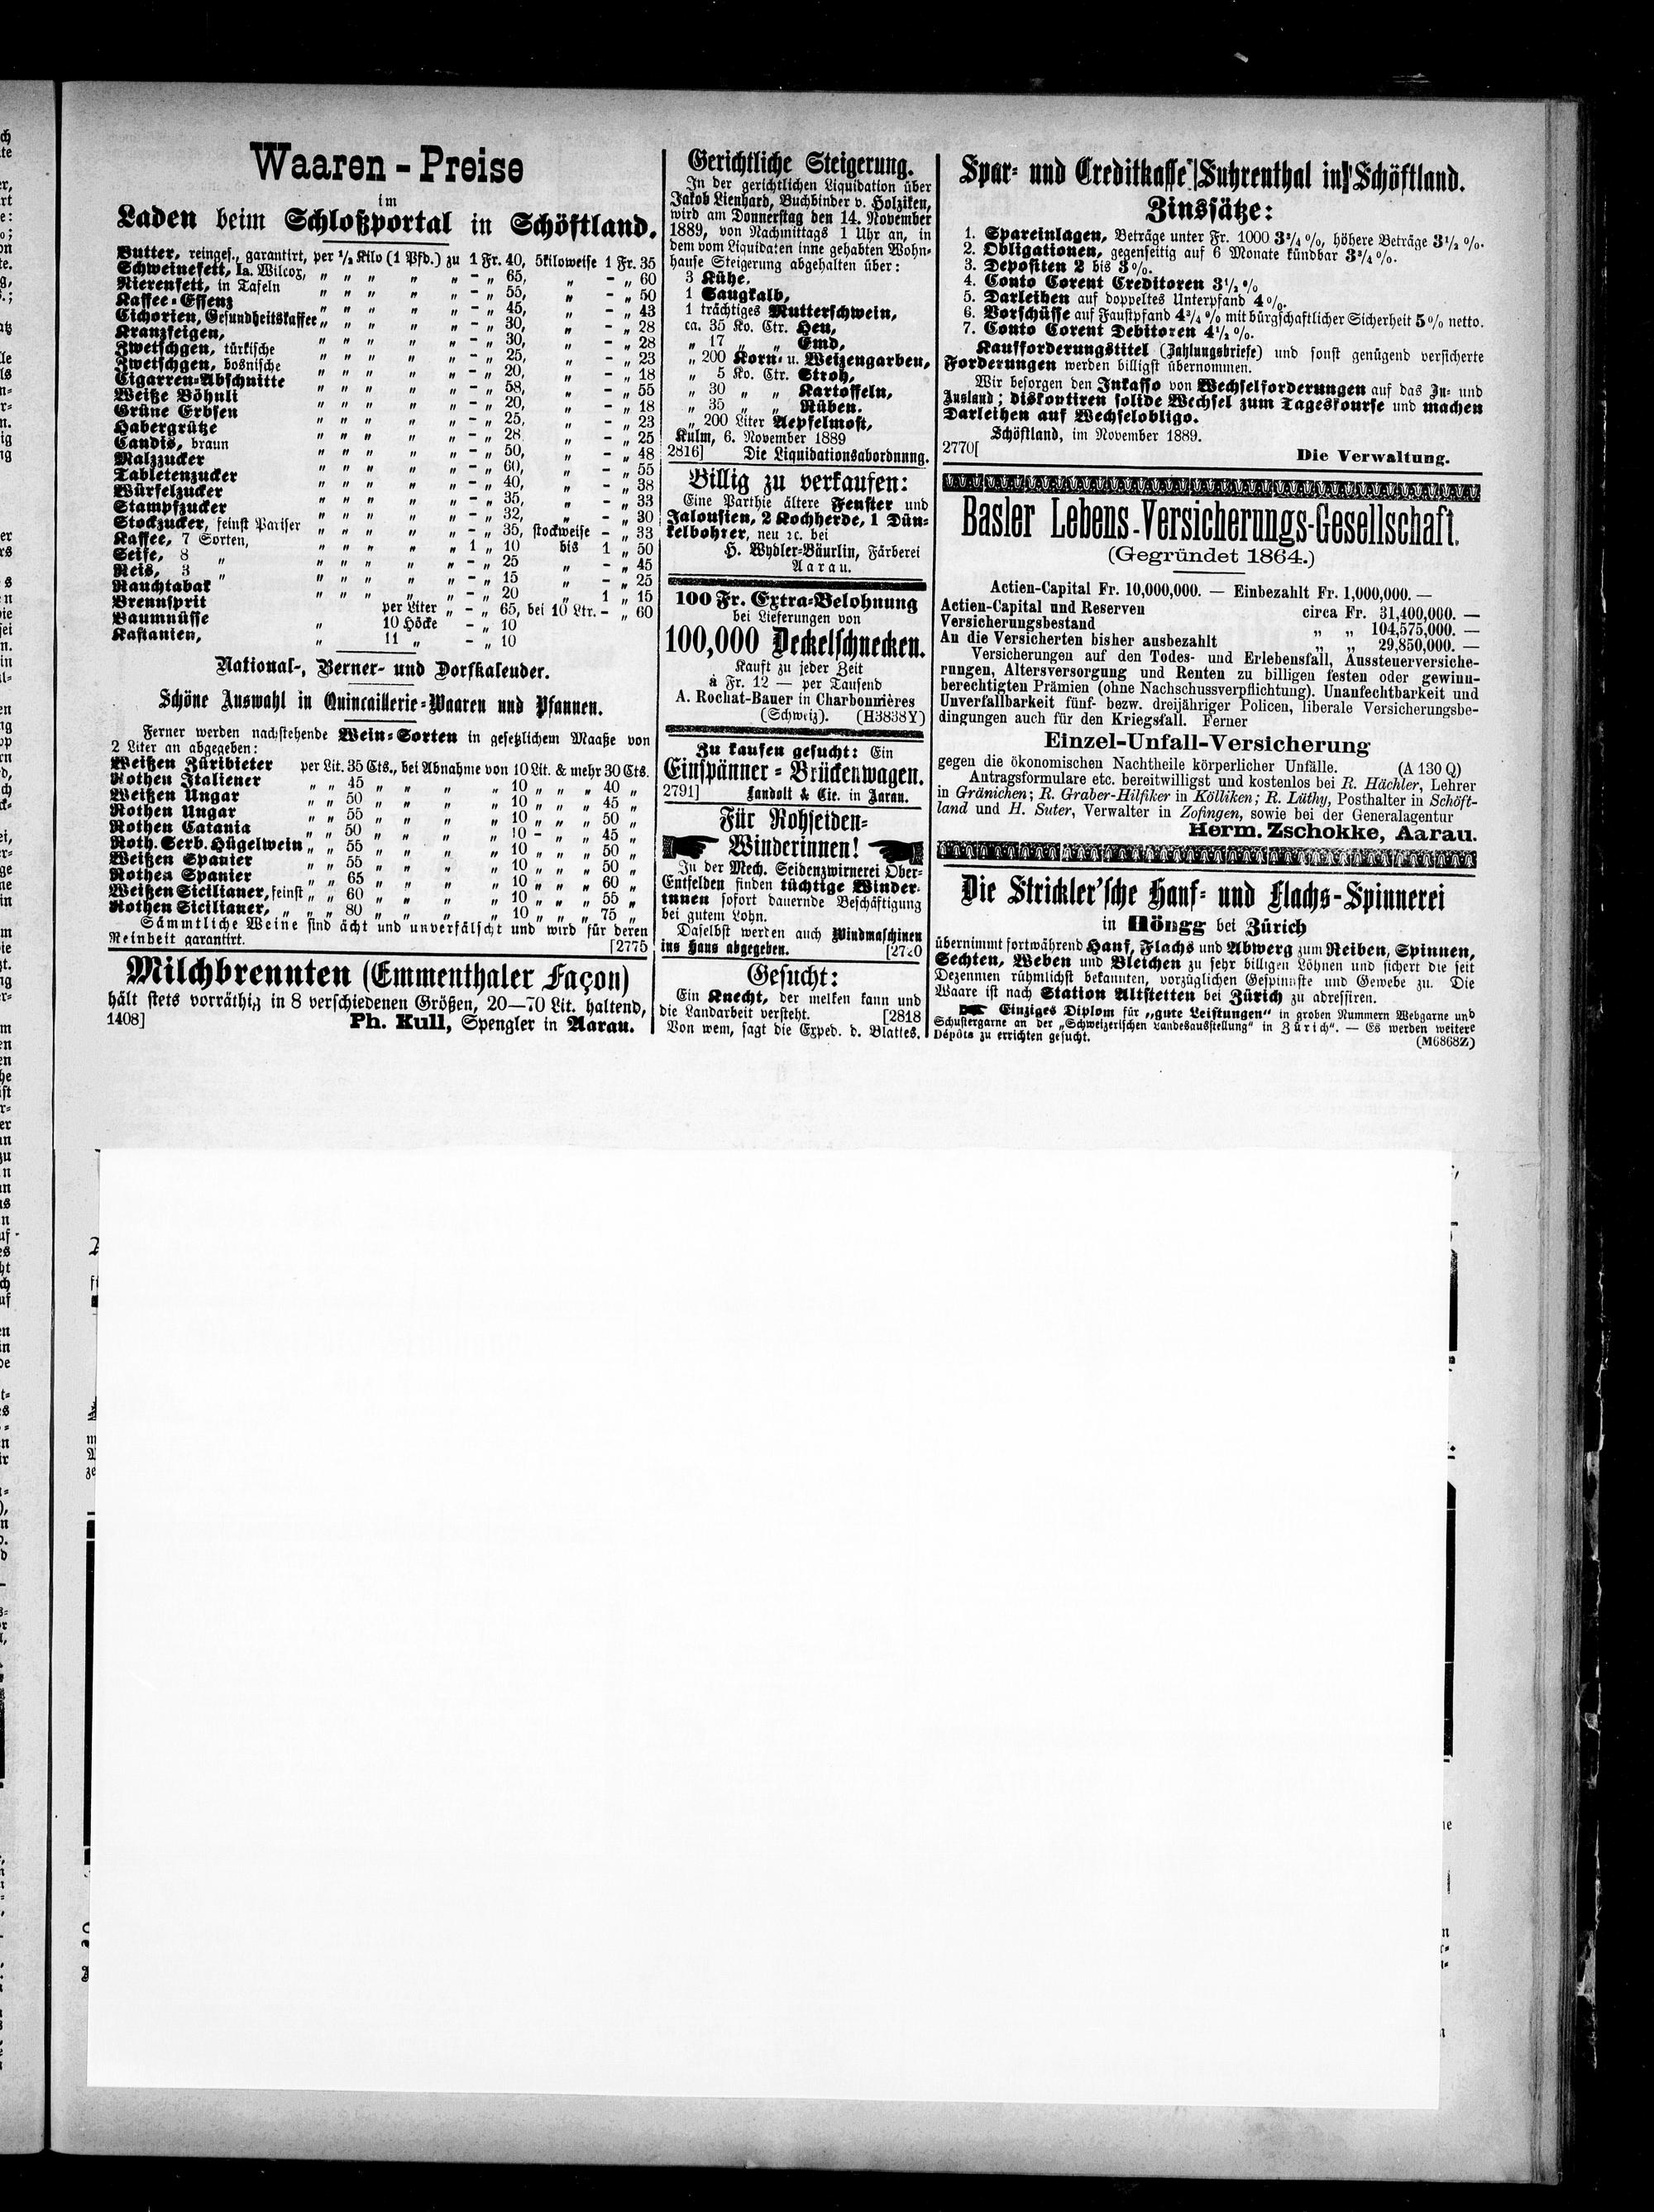 Waaren-Preise
im
Laden beim Schloßportal in Schöftland.
Butter, reingef., garantirt, per 1/2 Kilo (1 Pfd.) zu 1 Fr. 40, 5kiloweise 1 Fr. 35
Schweinefett, Ia. Wilcox, „ „ „ „ „ - „ 65, „ - „ 60
Nierenfett, in Tafeln „ „ „ „ „ - „ 55, „ - „ 50
Kaffee-Essenz „ „ „ „ „ - „ 45, „ - „ 43
Cichorien, Gesundheitskaffee „ „ „ „ „ - „ 30, „ - „ 28
Kranzfeigen, „ „ „ „ „ - „ 30, „ - „ 28
Zwetschgen, türkische „ „ „ „ „ - „ 25, „ - „ 23
Zwetschgen, bosnische „ „ „ „ „ - „ 20, „ - „ 18
Cigarren-Abschnitte „ „ „ „ „ - „ 58, „ - „ 55
Weiße Böhnli „ „ „ „ „ - „ 20, „ - „ 18
Grüne Erbsen „ „ „ „ „ - „ 25, „ - „ 23
Habergrütze „ „ „ „ „ - „ 28 „ - „ 25
Candis, braun „ „ „ „ „ - „ 50, „ - „ 48
Malzzucker „ „ „ „ „ - „ 60, „ - „ 55
Tabletenzucker „ „ „ „ „ - „ 40, „ - „ 38
Würfelzucker „ „ „ „ „ - „ 35, „ - „ 33
Stampfzucker „ „ „ „ „ - „ 32, „ - „ 30
Stockzucker, feinst Pariser „ „ „ „ „ - „ 35, stockweise - „ 33
Kaffee, 7 Sorten, „ „ „ „ „ 1 „ 10 bis 1 „ 50
Seife, 8 „ „ „ „ „ „ - „ 25 „ - „ 45
Reis, 3 „ „ „ „ „ „ - „ 15 „ - „ 25
Rauchtabak „ „ „ „ „ - „ 20 „ 1 „ 15
Brennsprit per Liter „ - „ 65, bei 10 Ltr. - „ 60
Baumnüsse „ 10 Höcke - „ 10
Kastanien, „ 11 „ - „ 10
National-, Berner- und Dorfkalender.
Schöne Auswahl in Quincaillerie-Waaren und Pfannen.
Ferner werden nachstehende Wein-Sorten in gesetzlichem Maaße von
2 Liter an abgegeben:
Weißen Züribieter per Lit. 35 Cts., bei Abnahme von 10 Lit. & mehr 30 Cts.
Rothen Italiener „ „ 45 „ „ „ „ 10 „ „ „ 40 „
Weißen Ungar „ „ 50 „ „ „ „ 10 „ „ „ 45 „
Rothen Ungar „ „ 55 „ „ „ „ 10 „ „ „ 50 „
Rothen Catania „ „ 50 „ „ „ „ 10 - „ „ 45 „
Roth. Serb. Hügelwein „ „ 55 „ „ „ „ 10 „ „ „ 50 „
Weißen Spanier „ „ 55 „ „ „ „ 10 „ „ „ 50 „
Rothen Spanier „ „ 65 „ „ „ „ 10 „ „ „ 60 „
Weißen Sicilianer, feinst „ „ 60 „ „ „ „ 10 „ „ „ 55 „
Rothen Sicilianer, „ „ „ 80 „ „ „ „ 10 „ „ „ 75 „
Sämmtliche Weine sind ächt und unverfälscht und wird für deren
Reinheit garantirt. [2775
Milchbrennten (Emmenthaler Façon)
hält stets vorräthig in 8 verschiedenen Größen, 20—70 Lit. haltend,
1408] Ph. Kull, Spengler in Aarau.
Gerichtliche Steigerung.
In der gerichtlichen Liquidation über
Jakob Lienhard, Buchbinder v. Holziken,
wird am Donnerstag den 14. November
1889, von Nachmittags 1 Uhr an, in
dem vom Liquidaten inne gehabten Wohn-
hause Steigerung abgehalten über:
3 Kühe,
1 Saugkalb,
1 trächtiges Mutterschwein,
ca. 35 Ko. Ctr. Heu,
„ 17 „ „ Emd,
„ 200 Korn- u. Weizengarben,
„ 5 Ko. Ctr. Stroh,
„ 30 „ „ Kartoffeln,
„ 35 „ „ Rüben.
„ 200 Liter Aepfelmost,
Kulm, 6. November 1889
2816] Die Liquidationsabordnung.
Billig zu verkaufen:
Eine Parthie ältere Fenster und
Jalousien, 2 Kochherde, 1 Dün-
kelbohrer, neu ꝛc. bei
H. Wydler-Bäurlin, Färberei
Aarau.
100 Fr. Extra-Belohnung
bei Lieferungen von
100,000 Deckelschnecken.
Kauft zu jeder Zeit
à Fr. 12 — per Tausend
A. Rochat-Bauer in Charbonnières
(Schweiz). (H3838Y)
Zu kaufen gesucht: Ein
Einspänner-Brückenwagen.
2791] Landolt & Cie. in Aarau.
Für Rohseiden-
Winderinnen!
In der Mech. Seidenzwirnerei Ober-
Entfelden finden tüchtige Winder-
innen sofort dauernde Beschäftigung
bei gutem Lohn.
Daselbst werden auch Windmaschinen
ins Haus abgegeben. [2720
Gesucht:
Ein Knecht, der melken kann und
die Landarbeit versteht. [2818
Von wem, sagt die Exped. d. Blattes.
Spar- und Creditkasse Suhrenthal in Schöftland.
Zinssätze:
1. Spareinlagen, Beträge unter Fr. 1000 3 3/4 %, höhere Beträge 3 1/2 %.
2. Obligationen, gegenseitig auf 6 Monate kündbar 3 3/4 %.
3. Depositen 2 bis 3 %.
4. Conto Corent Creditoren 3 1/2 %
5. Darleihen auf doppeltes Unterpfand 4 %.
6. Vorschüsse auf Faustpfand 4 3/4 % mit bürgschaftlicher Sicherheit 5 % netto.
7. Conto Corent Debitoren 4 1/2 %.
Kaufforderungstitel (Zahlungsbriefe) und sonst genügend versicherte
Forderungen werden billigst übernommen.
Wir besorgen den Inkasso von Wechselforderungen auf das In- und
Ausland; diskontiren solide Wechsel zum Tageskourse und machen
Darleihen auf Wechselobligo.
Schöftland, im November 1889.
2770[ Die Verwaltung.
Basler Lebens-Versicherungs-Gesellschaft.
(Gegründet 1864.)
Actien-Capital Fr. 10,000,000. — Einbezahlt Fr. 1,000,000. —
Actien-Capital und Reserven circa Fr. 31,400,000. —
Versicherungsbestand „ „ 104,575,000. —
An die Versicherten bisher ausbezahlt „ „ 29,850,000. —
Versicherungen auf den Todes- und Erlebensfall, Aussteuerversiche-
rungen, Altersversorgung und Renten zu billigen festen oder gewinn-
berechtigten Prämien (ohne Nachschussverpflichtung). Unanfechtbarkeit und
Unverfallbarkeit fünf- bezw. dreijähriger Policen, liberale Versicherungsbe-
dingungen auch für den Kriegsfall. Ferner
Einzel-Unfall-Versicherung
gegen die ökonomischen Nachtheile körperlicher Unfälle. (A 130 Q)
Antragsformulare etc. bereitwilligst und kostenlos bei R. Hächler, Lehrer
in Gränichen; R. Graber-Hilfiker in Kölliken; R. Lüthy, Posthalter in Schöft-
land und H. Suter, Verwalter in Zofingen, sowie bei der Generalagentur
Herm. Zschokke, Aarau.
Die Strickler'sche Hanf- und Flachs-Spinnerei
in Höngg bei Zürich
übernimmt fortwährend Hanf, Flachs und Abwerg zum Reiben, Spinnen,
Sechten, Weben und Bleichen zu sehr billigen Löhnen und sichert die seit
Dezennien rühmlichst bekannten, vorzüglichen Gespinnste und Gewebe zu. Die
Waare ist nach Station Altstetten bei Zürich zu adressiren.
Einziges Diplom für „gute Leistungen“ in groben Nummern Webgarne und
Schustergarne an der „Schweizerischen Landesausstellung“ in Zürich“. — Es werden weitere
Dépôts zu errichten gesucht. (M6868Z)